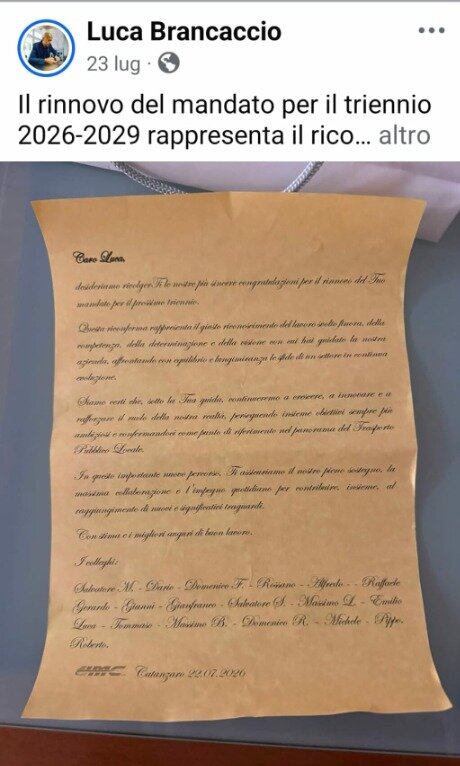 Luca Brancaccio
23 lug ·
Il rinnovo del mandato per il triennio
2026-2029 rappresenta il rico... altro
Caro Luca,
desideriamo rivolgerTi le nostre più sincere congratulazioni per il rinnovo del Tuo
mandato per il prossimo triennio.
Questa riconferma rappresenta il giusto riconoscimento del lavoro svolto finora, della
competenza, della determinazione e della visione con cui hai guidato la nostra
azienda, affrontando con equilibrio e lungimiranza le sfide di un settore in continua
evoluzione.
Siamo certi che, sotto la Tua guida, continueremo a crescere, a innovare e a
rafforzare il ruolo della nostra realtà, perseguendo insieme obiettivi sempre più
ambiziosi e confermandoci come punto di riferimento nel panorama del Trasporto
Pubblico Locale.
In questo importante nuovo percorso, Ti assicuriamo il nostro pieno sostegno, la
massima collaborazione e l'impegno quotidiano per contribuire, insieme, al
raggiungimento di nuovi e significativi traguardi.
Con stima e i migliori auguri di buon lavoro.
I colleghi:
Salvatore M. - Dario - Domenico F. - Rossano - Alfredo - - Raffaele
Gerardo - Gianni - Gianfranco - Salvatore S. - Massimo L. - Emilio
Luca - Tommaso - Massimo B. - Domenico R. - Michele - Pippo.
Roberto.
Catanzaro 22.07.2026